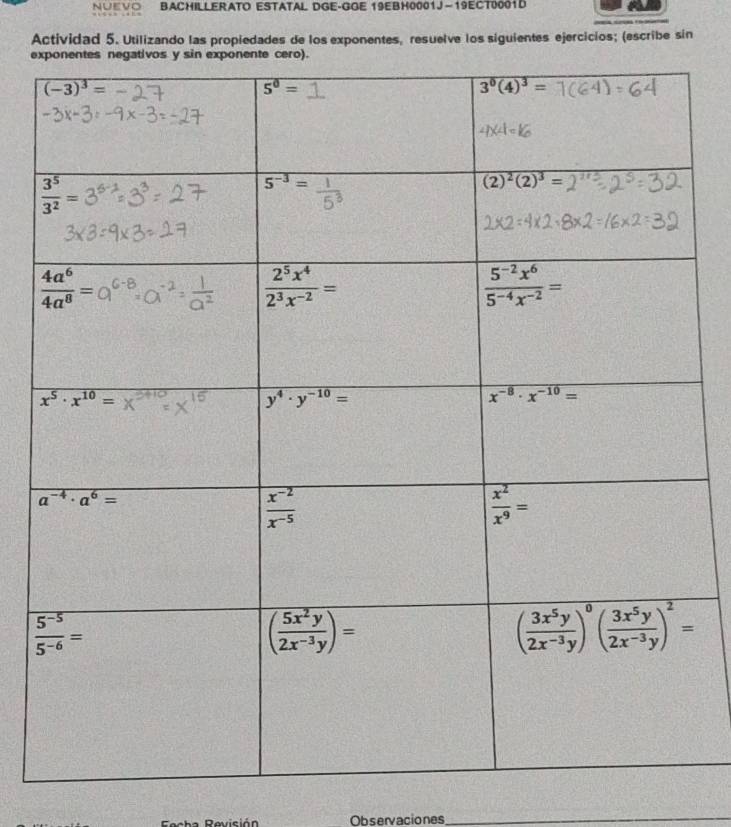 NUEVO BACHILLERATO ESTATAL DGE-GGE 19EBH0001J-19ECT0001D
Actividad 5. Utilizando las propiedades de los exponentes, resuelve los siguientes ejercicios; (escribe sin
exponentes negativos y sin exponente cero).
(-3)³ = -27
-3x-3=-9x-3=-27
5⁰ = 1
3⁰(4)³ = 1(64) = 64
4x4=16
3⁵/3² = 3⁵⁻² = 3³ = 27
3x3=9x3=27
5⁻³ = 1/5³
(2)²(2)³ = 2²⁺³ = 2⁵ = 32
2x2=4x2=8x2=16x2=32
4a⁶/4a⁸ = a⁶⁻⁸ = a⁻² = 1/a²
2⁵x⁴/2³x⁻² =
5⁻²x⁶/5⁻⁴x⁻² =
x⁵ · x¹⁰ = x⁵⁺¹⁰ = x¹⁵
y⁴ · y⁻¹⁰ =
x⁻⁸ · x⁻¹⁰ =
a⁻⁴ · a⁶ =
x⁻²/x⁻⁵
x²/x⁹ =
5⁻⁵/5⁻⁶ =
(5x²y/2x⁻³y) =
(3x⁵y/2x⁻³y)⁰ (3x⁵y/2x⁻³y)² =
Fecha Revisión Observaciones